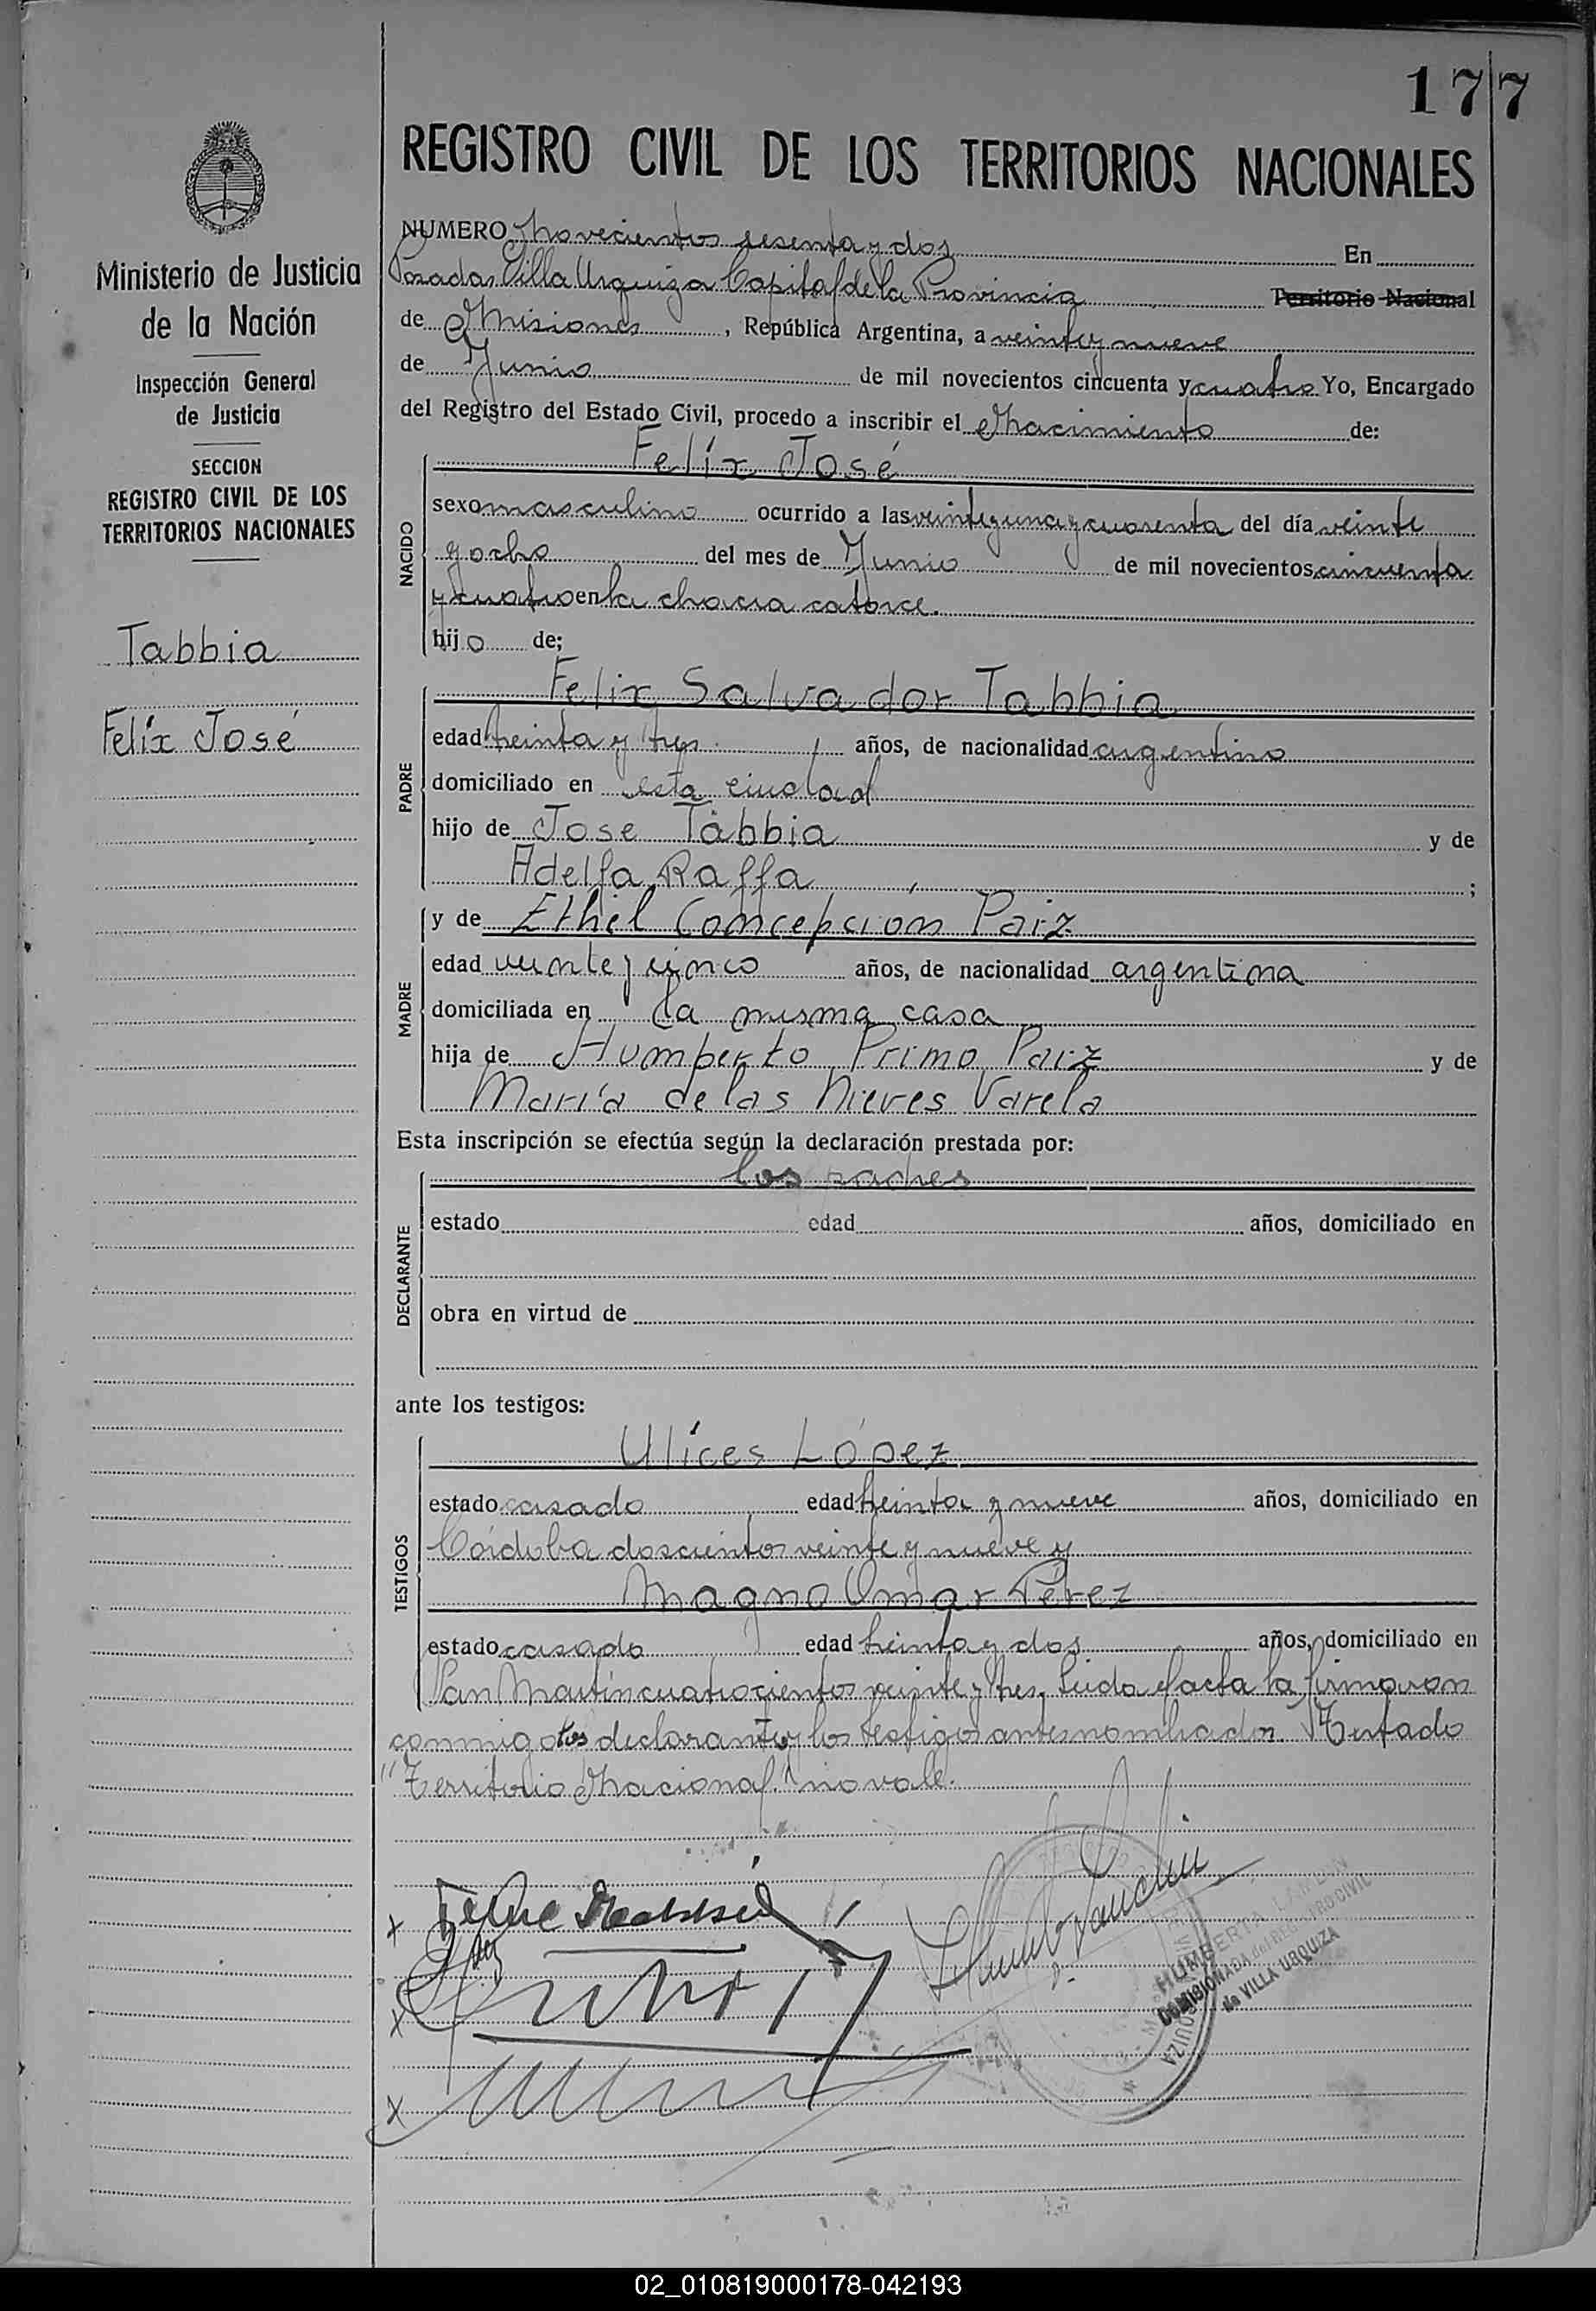 177
REGISTRO CIVIL DE LOS TERRITORIOS NACIONALES
Ministerio de Justicia
de la Nación
Inspección General
de Justicia
SECCION
REGISTRO CIVIL DE LOS
TERRITORIOS NACIONALES
Tabbia
Felíx José
NUMERO Novecientos sesenta y dos En
Posadas Villa Urquiza Capital de la Provincia Territorio Nacional
de Misiones, República Argentina, a veinte y nueve
de Junio de mil novecientos cincuenta y cuatro Yo, Encargado
del Registro del Estado Civil, procedo a inscribir el Nacimiento de:
NACIDO
Felíx José
sexo masculino ocurrido a las veinte y una y cuarenta del día veinte
y ocho del mes de Junio de mil novecientos cincuenta
y cuatro en la chacra catorce.
hijo de;
PADRE
Felix Salvador Tabbia
edad treinta y tres años, de nacionalidad argentino
domiciliado en esta ciudad
hijo de Jose Tabbia y de
Adelfa Raffa ;
MADRE
y de Ethel Concepción Paiz
edad veinte y cinco años, de nacionalidad argentina
domiciliada en la misma casa
hija de Humberto Primo Paiz y de
María de las Nieves Varela
Esta inscripción se efectúa según la declaración prestada por:
DECLARANTE
los padres
estado edad años, domiciliado en
obra en virtud de
ante los testigos:
TESTIGOS
Ulíces López
estado casado edad treinta y nueve años, domiciliado en
Córdoba doscientos veinte y nueve y
Magno Omar Pérez
estado casado edad treinta y dos años, domiciliado en
San Martín cuatrocientos veinte y tres. Leida el acta la firmaron
conmigo los declarantes y los testigos antes nombrados. Testado
"Territorio Nacional" no vale.
HUMBERTA LANDIN
COMISIONADA del REGISTRO CIVIL
de VILLA URQUIZA
02_010819000178-042193